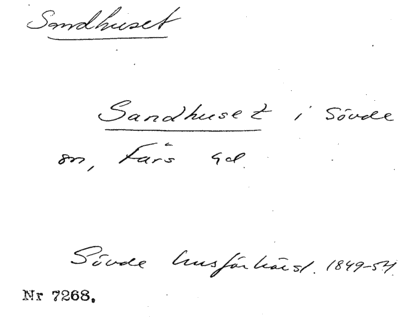 Sandhuset
Sandhuset i Sövde
sn, Färs hd.
Sövde husförhörsl. 1849-54.
Nr 7268.